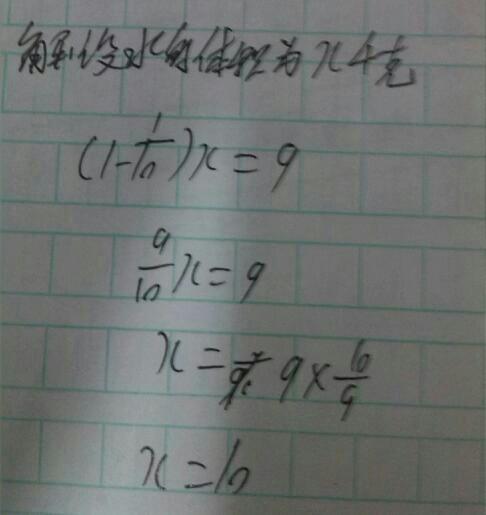 解:设水的体积为x千克
(1-1/10)x=9
9/10x=9
x=9×10/9
x=10